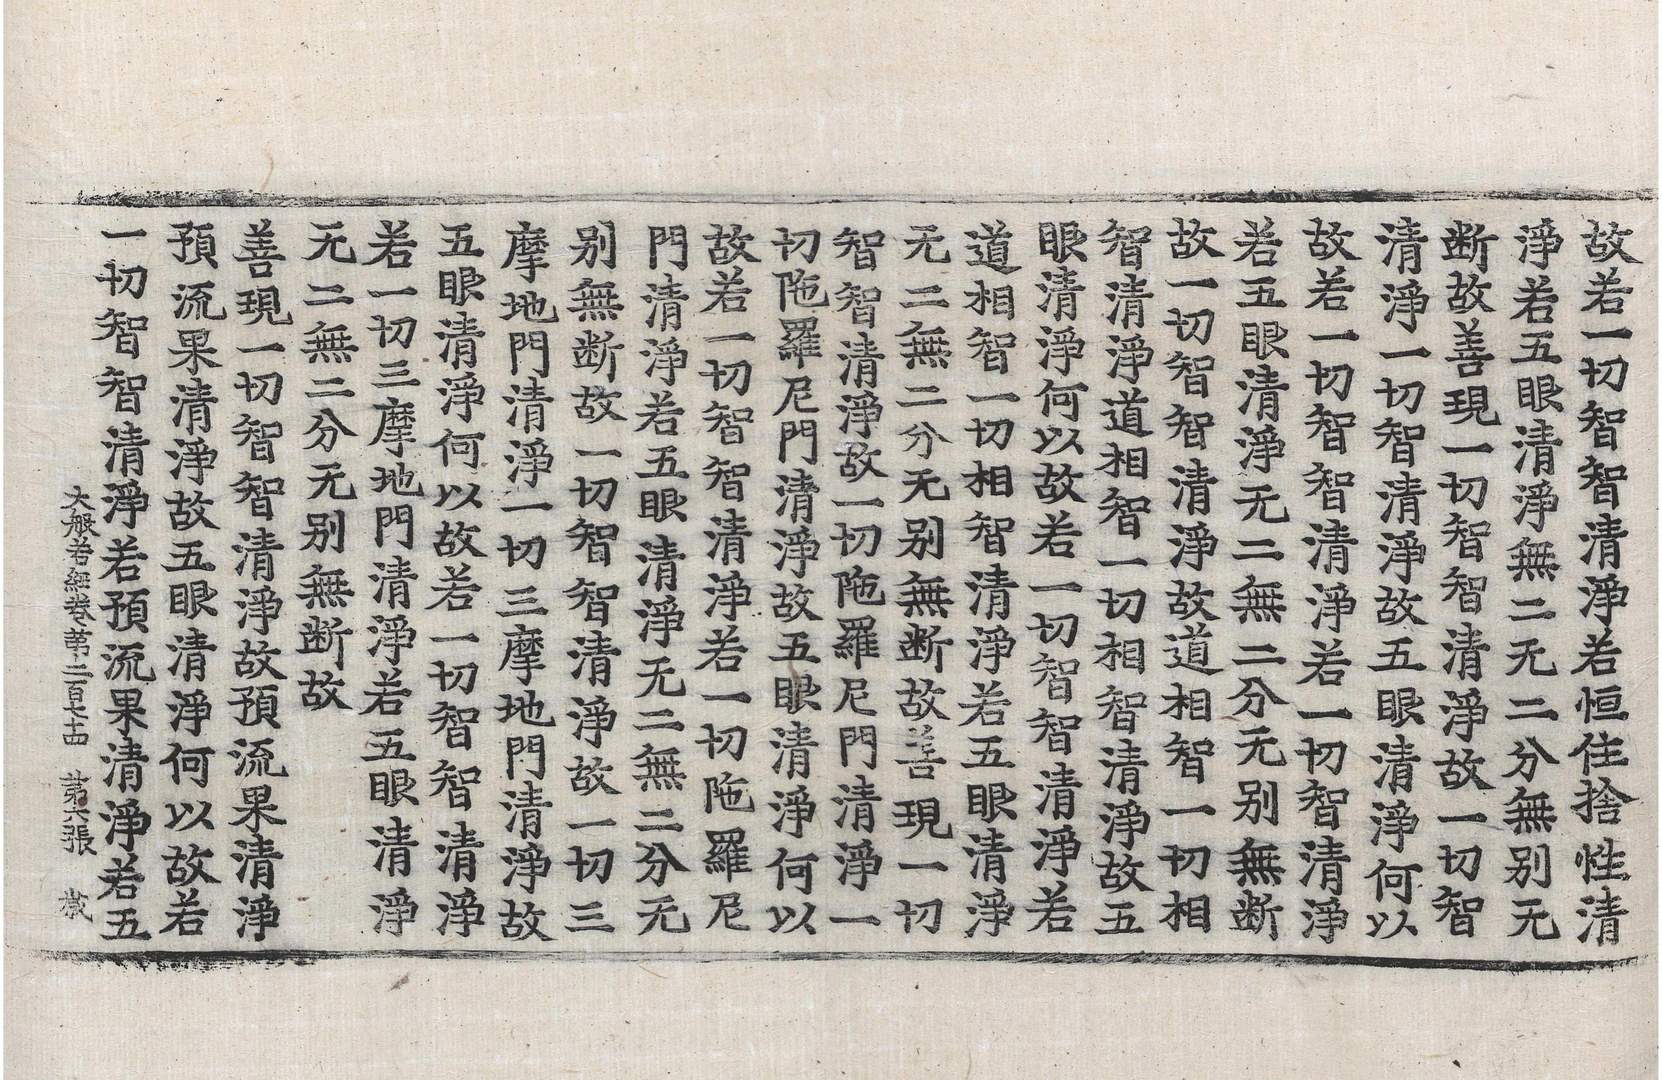 故若一切智智清淨若恒住捨性清
淨若五眼清淨無二无二分無别无
断故善現一切智智清淨故一切智
清淨一切智清淨故五眼清淨何以
故若一切智智清淨若一切智清淨
若五眼清淨无二無二分无别無断
故一切智智清淨故道相智一切相
智清淨道相智一切相智清淨故五
眼清淨何以故若一切智智清淨若
道相智一切相智清淨若五眼清淨
无二無二分无别無断故善現一切
智智清淨故一切陁羅尼門清淨一
切陁羅尼門清淨故五眼清淨何以
故若一切智智清淨若一切陁羅尼
門清淨若五眼清淨无二無二分无
别無断故一切智智清淨故一切三
摩地門清淨一切三摩地門清淨故
五眼清淨何以故若一切智智清淨
若一切三摩地門清淨若五眼清淨
无二無二分无别無断故
善現一切智智清淨故預流果清淨
預流果清淨故五眼清淨何以故若
一切智智清淨若預流果清淨若五
大般若經卷第二百七十四 第六張